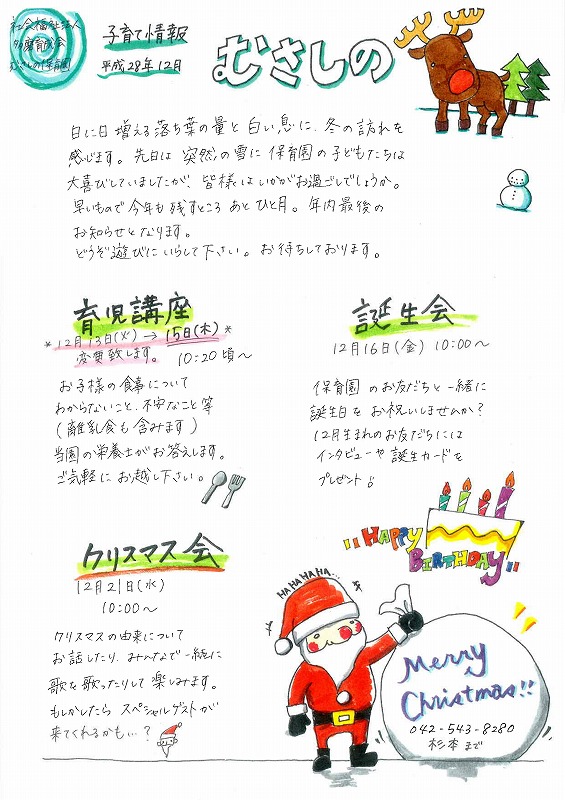 社会福祉法人
多摩育成会
むさしの保育園
子育て情報
平成28年12月
むさしの
日に日に増える落ち葉の量と白い息に、冬の訪れを
感じます。先日は突然の雪に保育園の子どもたちは
大喜びしていましたが、皆様はいかがお過ごしでしょうか。
早いもので今年も残すところあとひと月。年内最後の
お知らせとなります。
どうぞ遊びにいらして下さい。お待ちしております。
育児講座
*12月13日(火)→15日(木)*
変更致します。 10:20頃〜
お子様の食事について
わからないこと、不安なこと等
(離乳食も含みます)
当園の栄養士がお答えします。
ご気軽にお越し下さい。
誕生会
12月16日(金) 10:00〜
保育園のお友だちと一緒に
誕生日をお祝いしませんか?
12月生まれのお友だちには
インタビューや誕生カードを
プレゼント♪
HAPPY
BIRTHDAY
クリスマス会
12月21日(水)
10:00〜
クリスマスの由来について
お話したり、みんなで一緒に
歌を歌ったりして楽しみます。
もしかしたらスペシャルゲストが
来てくれるかも…?
HA HA HA HA...
Merry
Christmas!!
042-543-8280
杉本まで